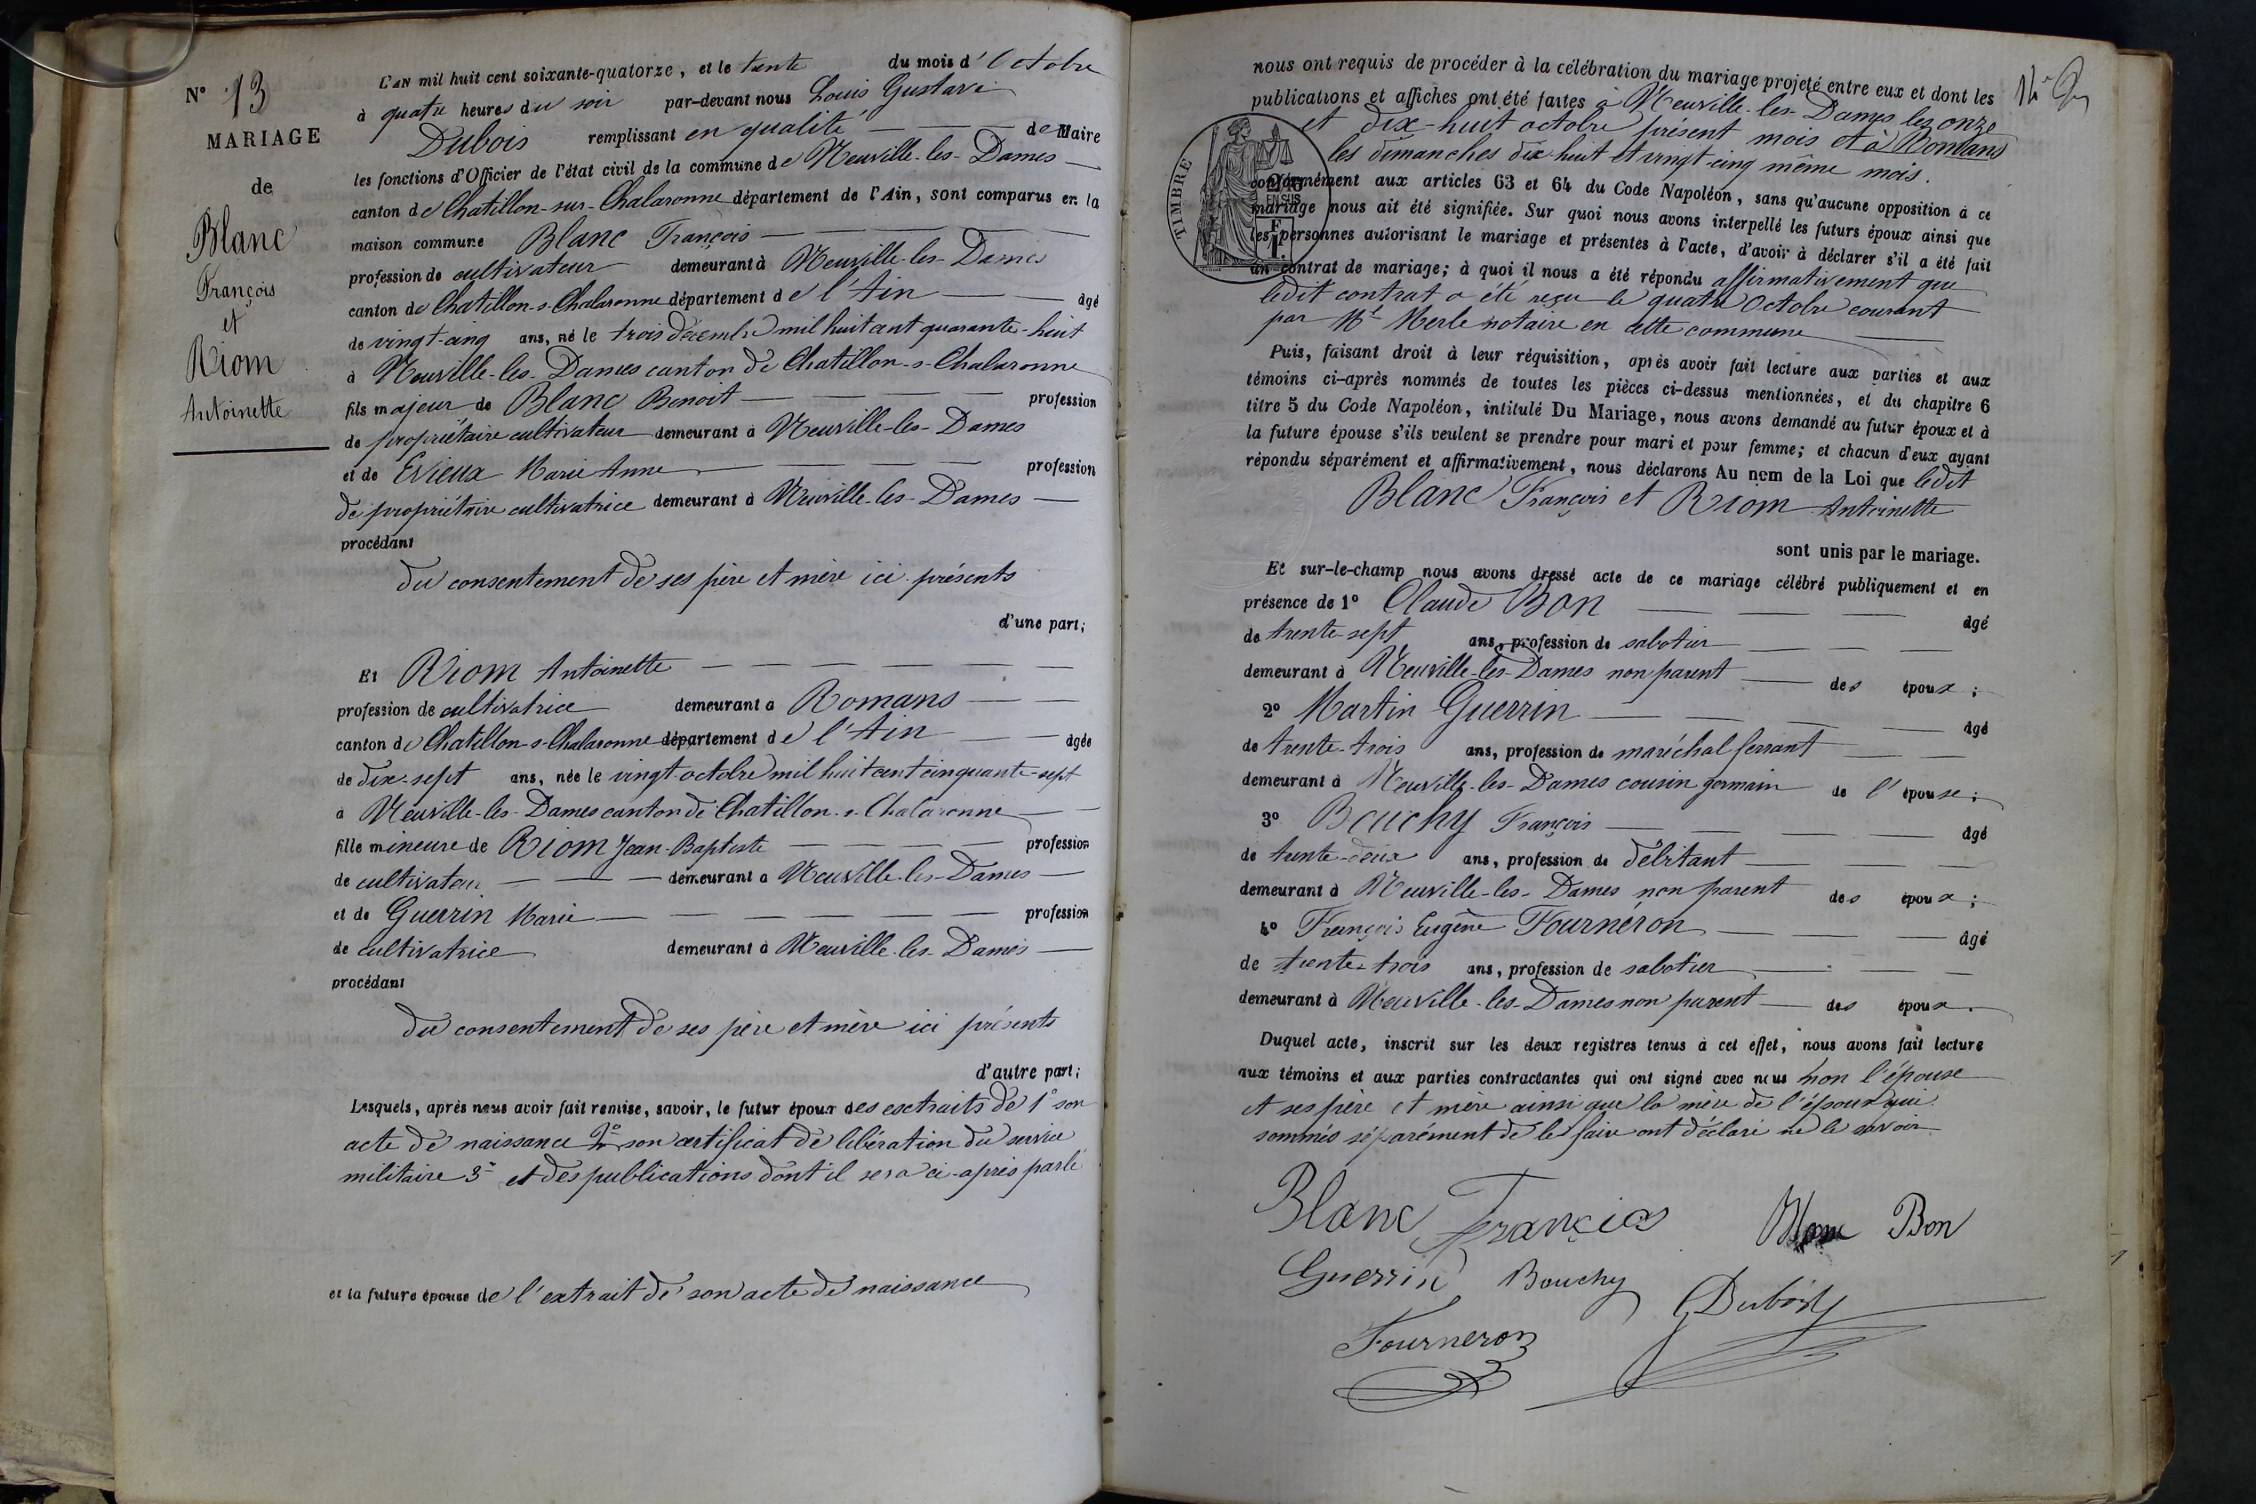 N° 13
MARIAGE
de
Blanc
François
et
Riom
Antoinette
L'AN mil huit cent soixante-quatorze, et le trente du mois d'Octobre
à quatre heures du soir par-devant nous Louis Gustave
Dubois remplissant en qualité de Maire
les fonctions d'Officier de l'état civil de la commune de Neuville-les-Dames
canton de Chatillon-sur-Chalaronne département de l'Ain, sont comparus en la
maison commune Blanc François
profession de cultivateur demeurant à Neuville-les-Dames
canton de Chatillon-s-Chalaronne département de l'Ain âgé
de vingt-cinq ans, né le trois décembre mil huit cent quarante-huit
à Neuville-les-Dames canton de Chatillon-s-Chalaronne
fils majeur de Blanc Benoit profession
de propriétaire cultivateur demeurant à Neuville-les-Dames
et de Evieux Marie Anne profession
de propriétaire cultivatrice demeurant à Neuville-les-Dames
procédant
du consentement de ses père et mère ici présents
d'une part;
Et Riom Antoinette
profession de cultivatrice demeurant à Romans
canton de Chatillon-s-Chalaronne département de l'Ain âgée
de dix-sept ans, née le vingt octobre mil huit cent cinquante-sept
à Neuville-les-Dames canton de Chatillon-s-Chalaronne
fille mineure de Riom Jean-Baptiste profession
de cultivateur demeurant à Neuville-les-Dames
et de Guerrin Marie profession
de cultivatrice demeurant à Neuville-les-Dames
procédant
du consentement de ses père et mère ici présents
d'autre part;
Lesquels, après nous avoir fait remise, savoir, le futur époux des extraits de 1° son
acte de naissance 2° son certificat de libération du service
militaire 3° et des publications dont il sera ci-après parlé
et la future épouse de l'extrait de son acte de naissance
nous ont requis de procéder à la célébration du mariage projeté entre eux et dont les
publications et affiches ont été faites à Neuville-les-Dames les onze
et dix-huit octobre présent mois et à Romans
les dimanches dix-huit et vingt-cinq même mois.
TIMBRE
2/10 EN SUS
1 F.
conformément aux articles 63 et 64 du Code Napoléon, sans qu'aucune opposition à ce
mariage nous ait été signifiée. Sur quoi nous avons interpellé les futurs époux ainsi que
les personnes autorisant le mariage et présentes à l'acte, d'avoir à déclarer s'il a été fait
un contrat de mariage; à quoi il nous a été répondu affirmativement que
ledit contrat a été reçu le quatre Octobre courant
par Mt Merle notaire en cette commune
Puis, faisant droit à leur réquisition, après avoir fait lecture aux parties et aux
témoins ci-après nommés de toutes les pièces ci-dessus mentionnées, et du chapitre 6
titre 5 du Code Napoléon, intitulé Du Mariage, nous avons demandé au futur époux et à
la future épouse s'ils veulent se prendre pour mari et pour femme; et chacun d'eux ayant
répondu séparément et affirmativement, nous déclarons Au nom de la Loi que ledit
Blanc François et Riom Antoinette
sont unis par le mariage.
Et sur-le-champ nous avons dressé acte de ce mariage célébré publiquement et en
présence de 1° Claude Bon âgé
de trente-sept ans, profession de sabotier
demeurant à Neuville-les-Dames non parent des époux;
2° Martin Guerrin âgé
de trente-trois ans, profession de maréchal ferrant
demeurant à Neuville-les-Dames cousin germain de l'épouse;
3° Bouchy François âgé
de trente-deux ans, profession de débitant
demeurant à Neuville-les-Dames non parent des époux;
4° François Eugène Fournéron âgé
de trente-trois ans, profession de sabotier
demeurant à Neuville-les-Dames non parent des époux.
Duquel acte, inscrit sur les deux registres tenus à cet effet, nous avons fait lecture
aux témoins et aux parties contractantes qui ont signé avec nous non l'épouse
et ses père et mère ainsi que la mère de l'époux qui
sommés séparément de le faire ont déclaré ne le savoir
Blanc François Blanc Bon
Guerrin Bouchy G Dubois
Fourneron